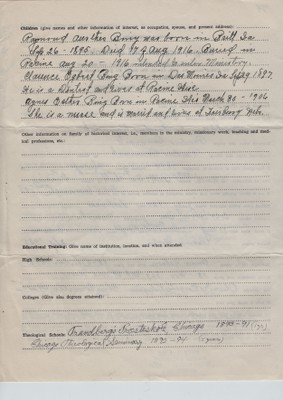 Children (give names and other information of interest, as occupation, spouse, and present address):
Raymond Awther Bring was born in Pella Ia
Sep 26 - 1895. Died 17 Aug 1916. Buried in
Racine Aug 20 - 1916
Clarence Egbert Bring Born in Des Moines Ia Sep 29 1897.
He is a Dentist and lives at Racine Wisc.
Agnes Esther Bring Born in Racine Wis March 30 - 1906
She is a nurse and is married and lives at Fairbury Neb.
Other information on family of historical interest, i.e., relatives in the ministry, missionary work, teaching and medical professions, etc.:
Educational Training: (Give name of institution, location, and when attended.
High Schools:
Colleges (Give also degrees attained):
Theological Schools: Chicago 1890-91 (1 yr.)
Chicago Theological Seminary